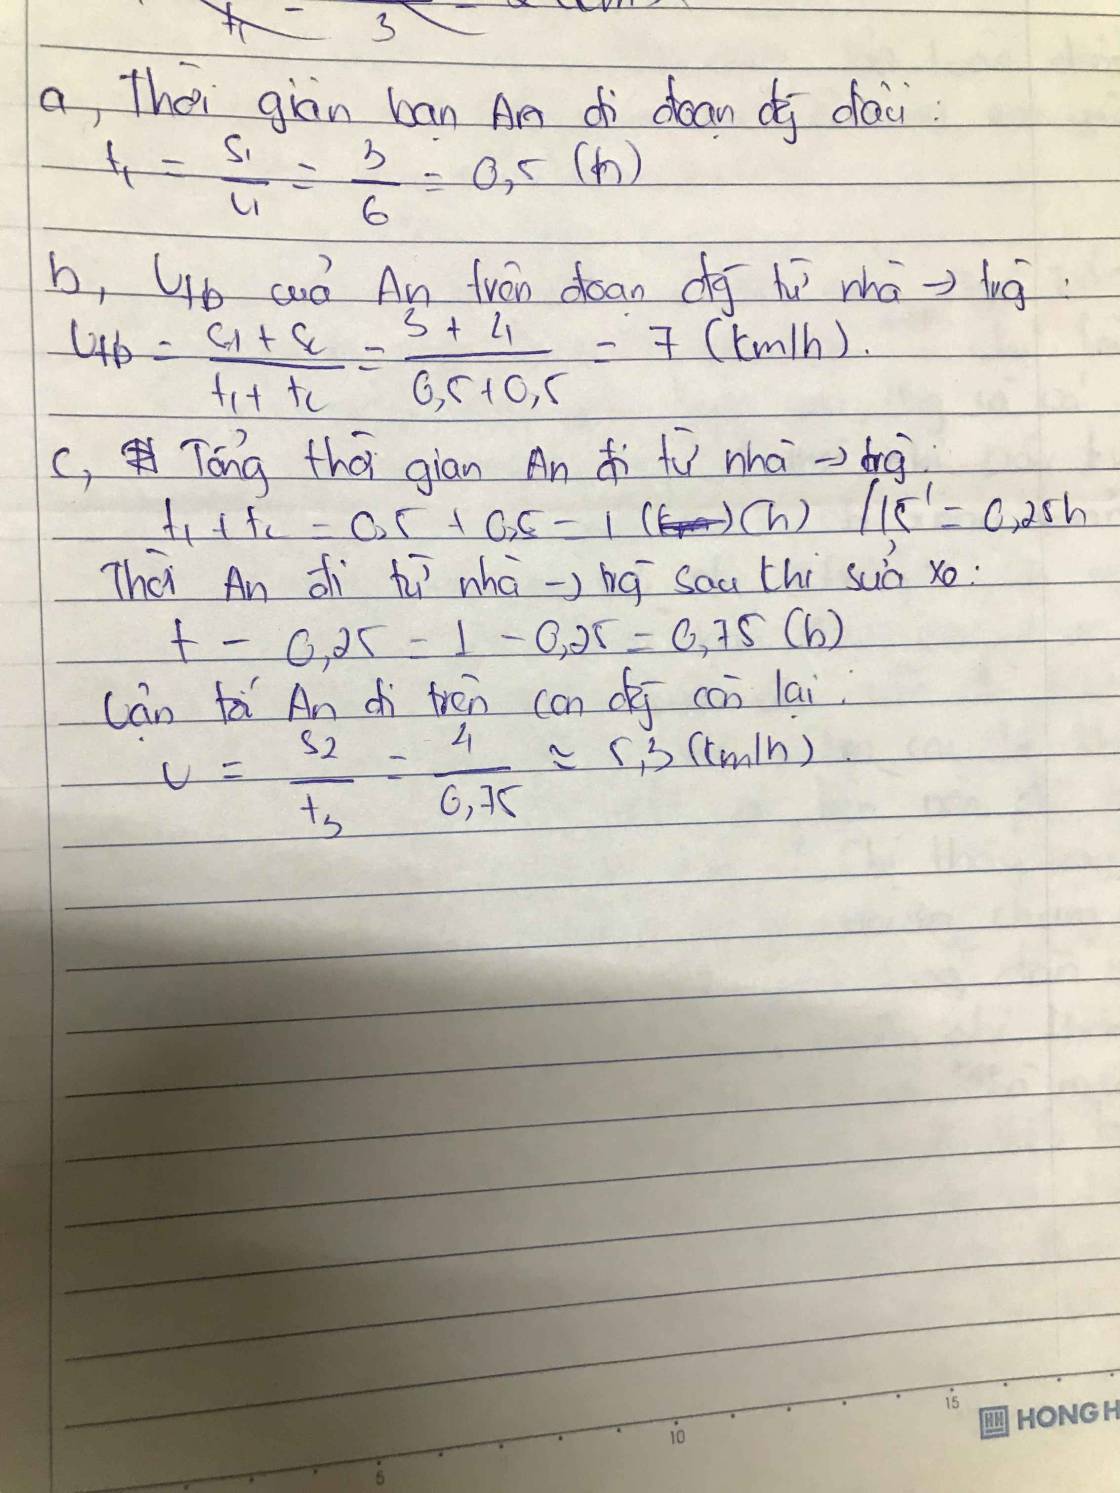 t₁ = 3
a, Thời gian bạn An đi đoạn đg đầu :
t₁ = S₁/v₁ = 3/6 = 0,5 (h)
b, Vtb của An trên đoạn đg từ nhà → trg :
Vtb = S₁ + S₂/t₁ + t₂ = 3 + 4/0,5 + 0,5 = 7 (km/h).
c, Tổng thời gian An đi từ nhà → trg :
t₁ + t₂ = 0,5 + 0,5 = 1 (h) / 15' = 0,25h
Thời An đi từ nhà → trg sau khi sửa xe :
t - 0,25 = 1 - 0,25 = 0,75 (h)
Vận tố An đi trên con đg còn lại :
v = S2/t₃ = 4/0,75 ≈ 5,3 (km/h).
5 10 15 HH HONG H